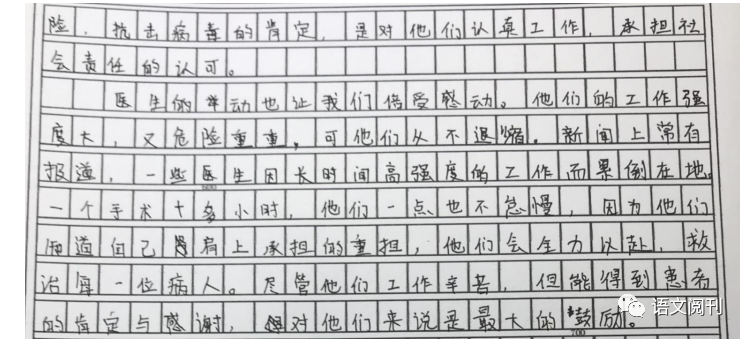 险，抗击病毒的肯定，是对他们认真工作，承担社
会责任的认可。
医生的举动也让我们倍受感动。他们的工作强
度大，又危险重重，可他们从不退缩。新闻上常有
报道，一些医生因长时间高强度的工作而累倒在地。
一个手术十多小时，他们一点也不怠慢，因为他们
知道自己肩上承担的重担，他们会全力以赴，救
治每一位病人。尽管他们工作辛苦，但能得到患者
的肯定与感谢，对他们来说是最大的鼓励。
700
语文阅刊